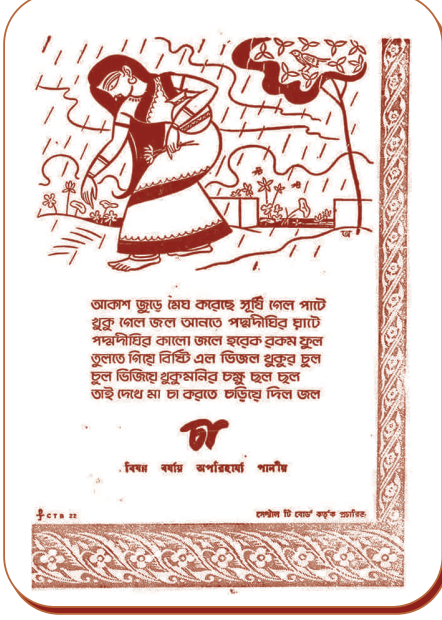 আকাশ জুড়ে মেঘ করেছে সূয্যি গেল পাটে
খুকু গেল জল আনতে পদ্মদীঘির ঘাটে
পদ্মদীঘির কালো জলে হরেক রকম ফুল
তুলতে গিয়ে বিষ্টি এল ভিজল খুকুর চুল
চুল ভিজিয়ে খুকুমনির চক্ষু ছল ছল
তাই দেখে মা চা করতে চড়িয়ে দিল জল
চা
বিষন্ন বর্ষায় অপরিহার্য্য পানীয়
CTB 22
সেন্ট্রাল টি বোর্ড কর্তৃক প্রচারিত